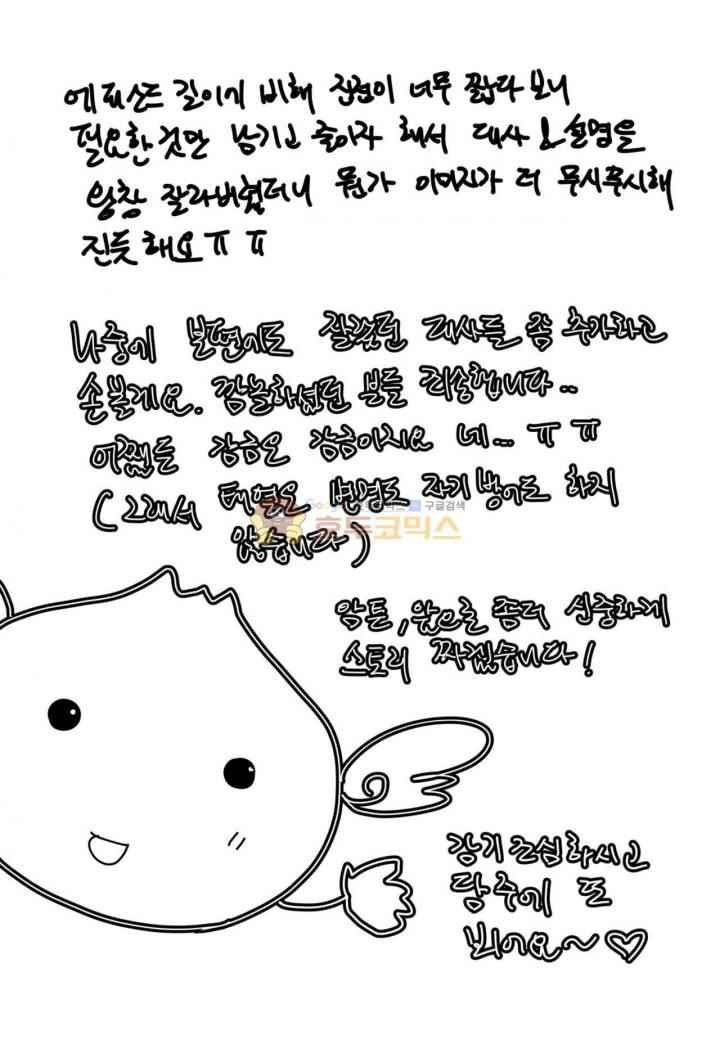 에피소드 길이에 비해 진전이 너무 짧다 보니
필요한 것만 남기고 줄이자 해서 대사 & 설명을
왕창 잘라버렸더니 뭔가 이미지가 더 무시무시해
진듯 해요 ㅠ ㅠ
나중에 본편에도 잘렸던 대사들 좀 추가하고
손볼게요. 깜놀하셨던 분들 죄송합니다..
어쨌든 감금은 감금이지요 네... ㅠ ㅠ
( 그래서 태경은 변명도 자기 방어도 하지
않습니다 )
구글검색
호두코믹스
암튼, 앞으로 좀더 신중하게
스토리 짜겠습니다!
감기 조심하시고
담주에 또
뵈어요~ ♡